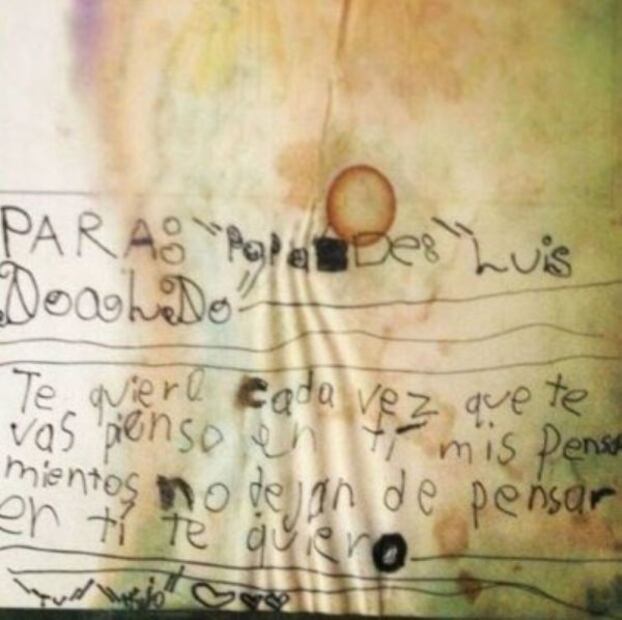 PARA: "Papa" DE: "Luis
te quiero cada vez que te
vas pienso en ti mis pensa
mientos no dejan de pensar
en ti te quiero
"Tu" "Hijo"